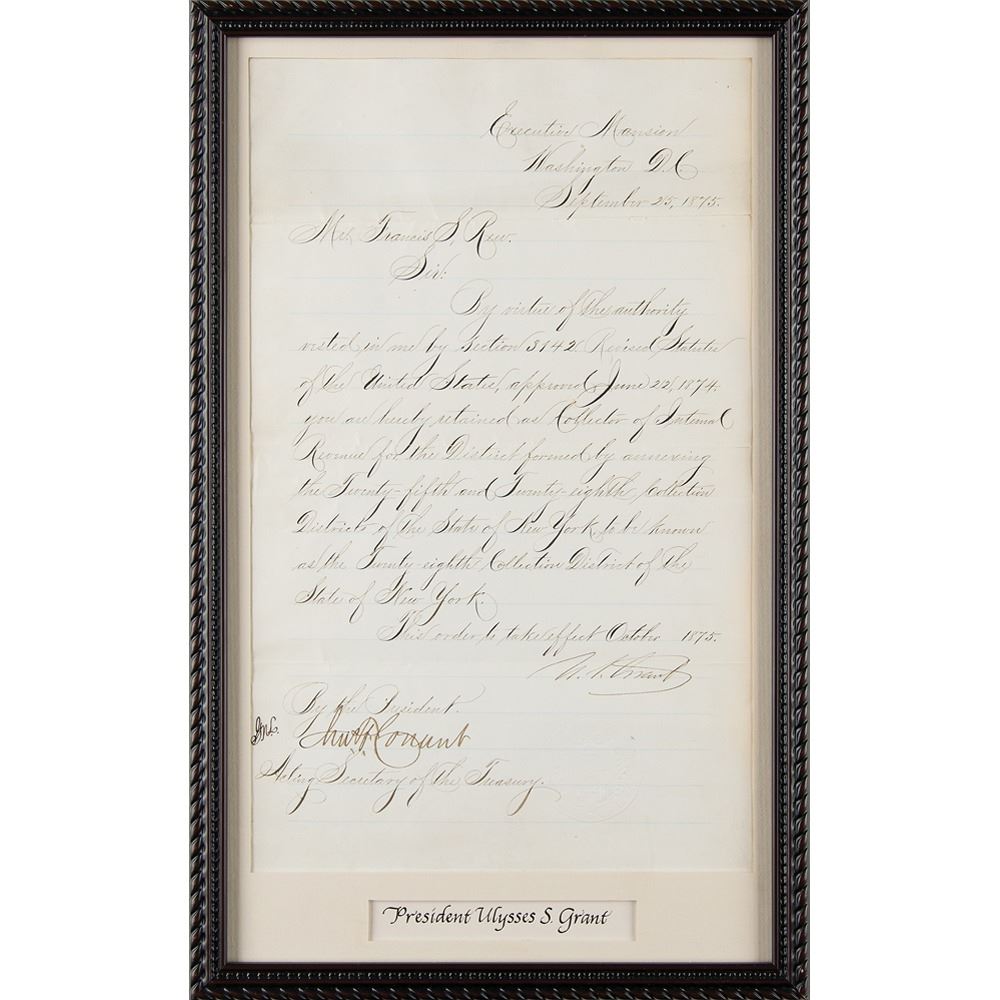 Executive Mansion
Washington D.C.
September 25, 1875.
Mr. Francis S. Rew.
Sir:
By virtue of the authority
vested in me by Section 3142 Revised Statutes
of the United States, approved June 22, 1874.
you are hereby retained as Collector of Internal
Revenue for the District formed by annexing
the Twenty-fifth and Twenty-eighth Collection
Districts of the State of New York, to be known
as the Twenty-eighth Collection District of the
State of New York.
This order to take effect October 1875.
U. S. Grant
By the President.
Conant
Acting Secretary of the Treasury.
President Ulysses S. Grant